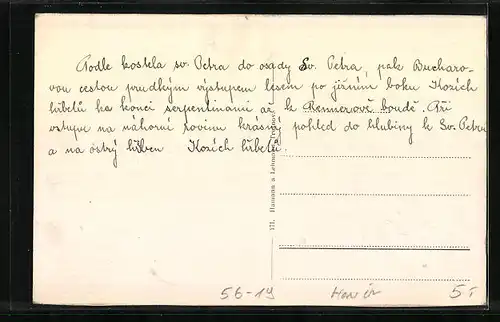 Podle kostela sv. Petra do osady Sv. Petra, pak Bucharo-
vou cestou prudkým výstupem lesem po jižním boku Kozích
hřbetů ke konci serpentinami až k Rennerově boudě. Při
vstupu na náhorní rovinu krásný pohled do hlubiny k Sv. Petru
a na ostrý hřben Kozích hřbetů.
171. Hamann a Lehmann
56-19
5-